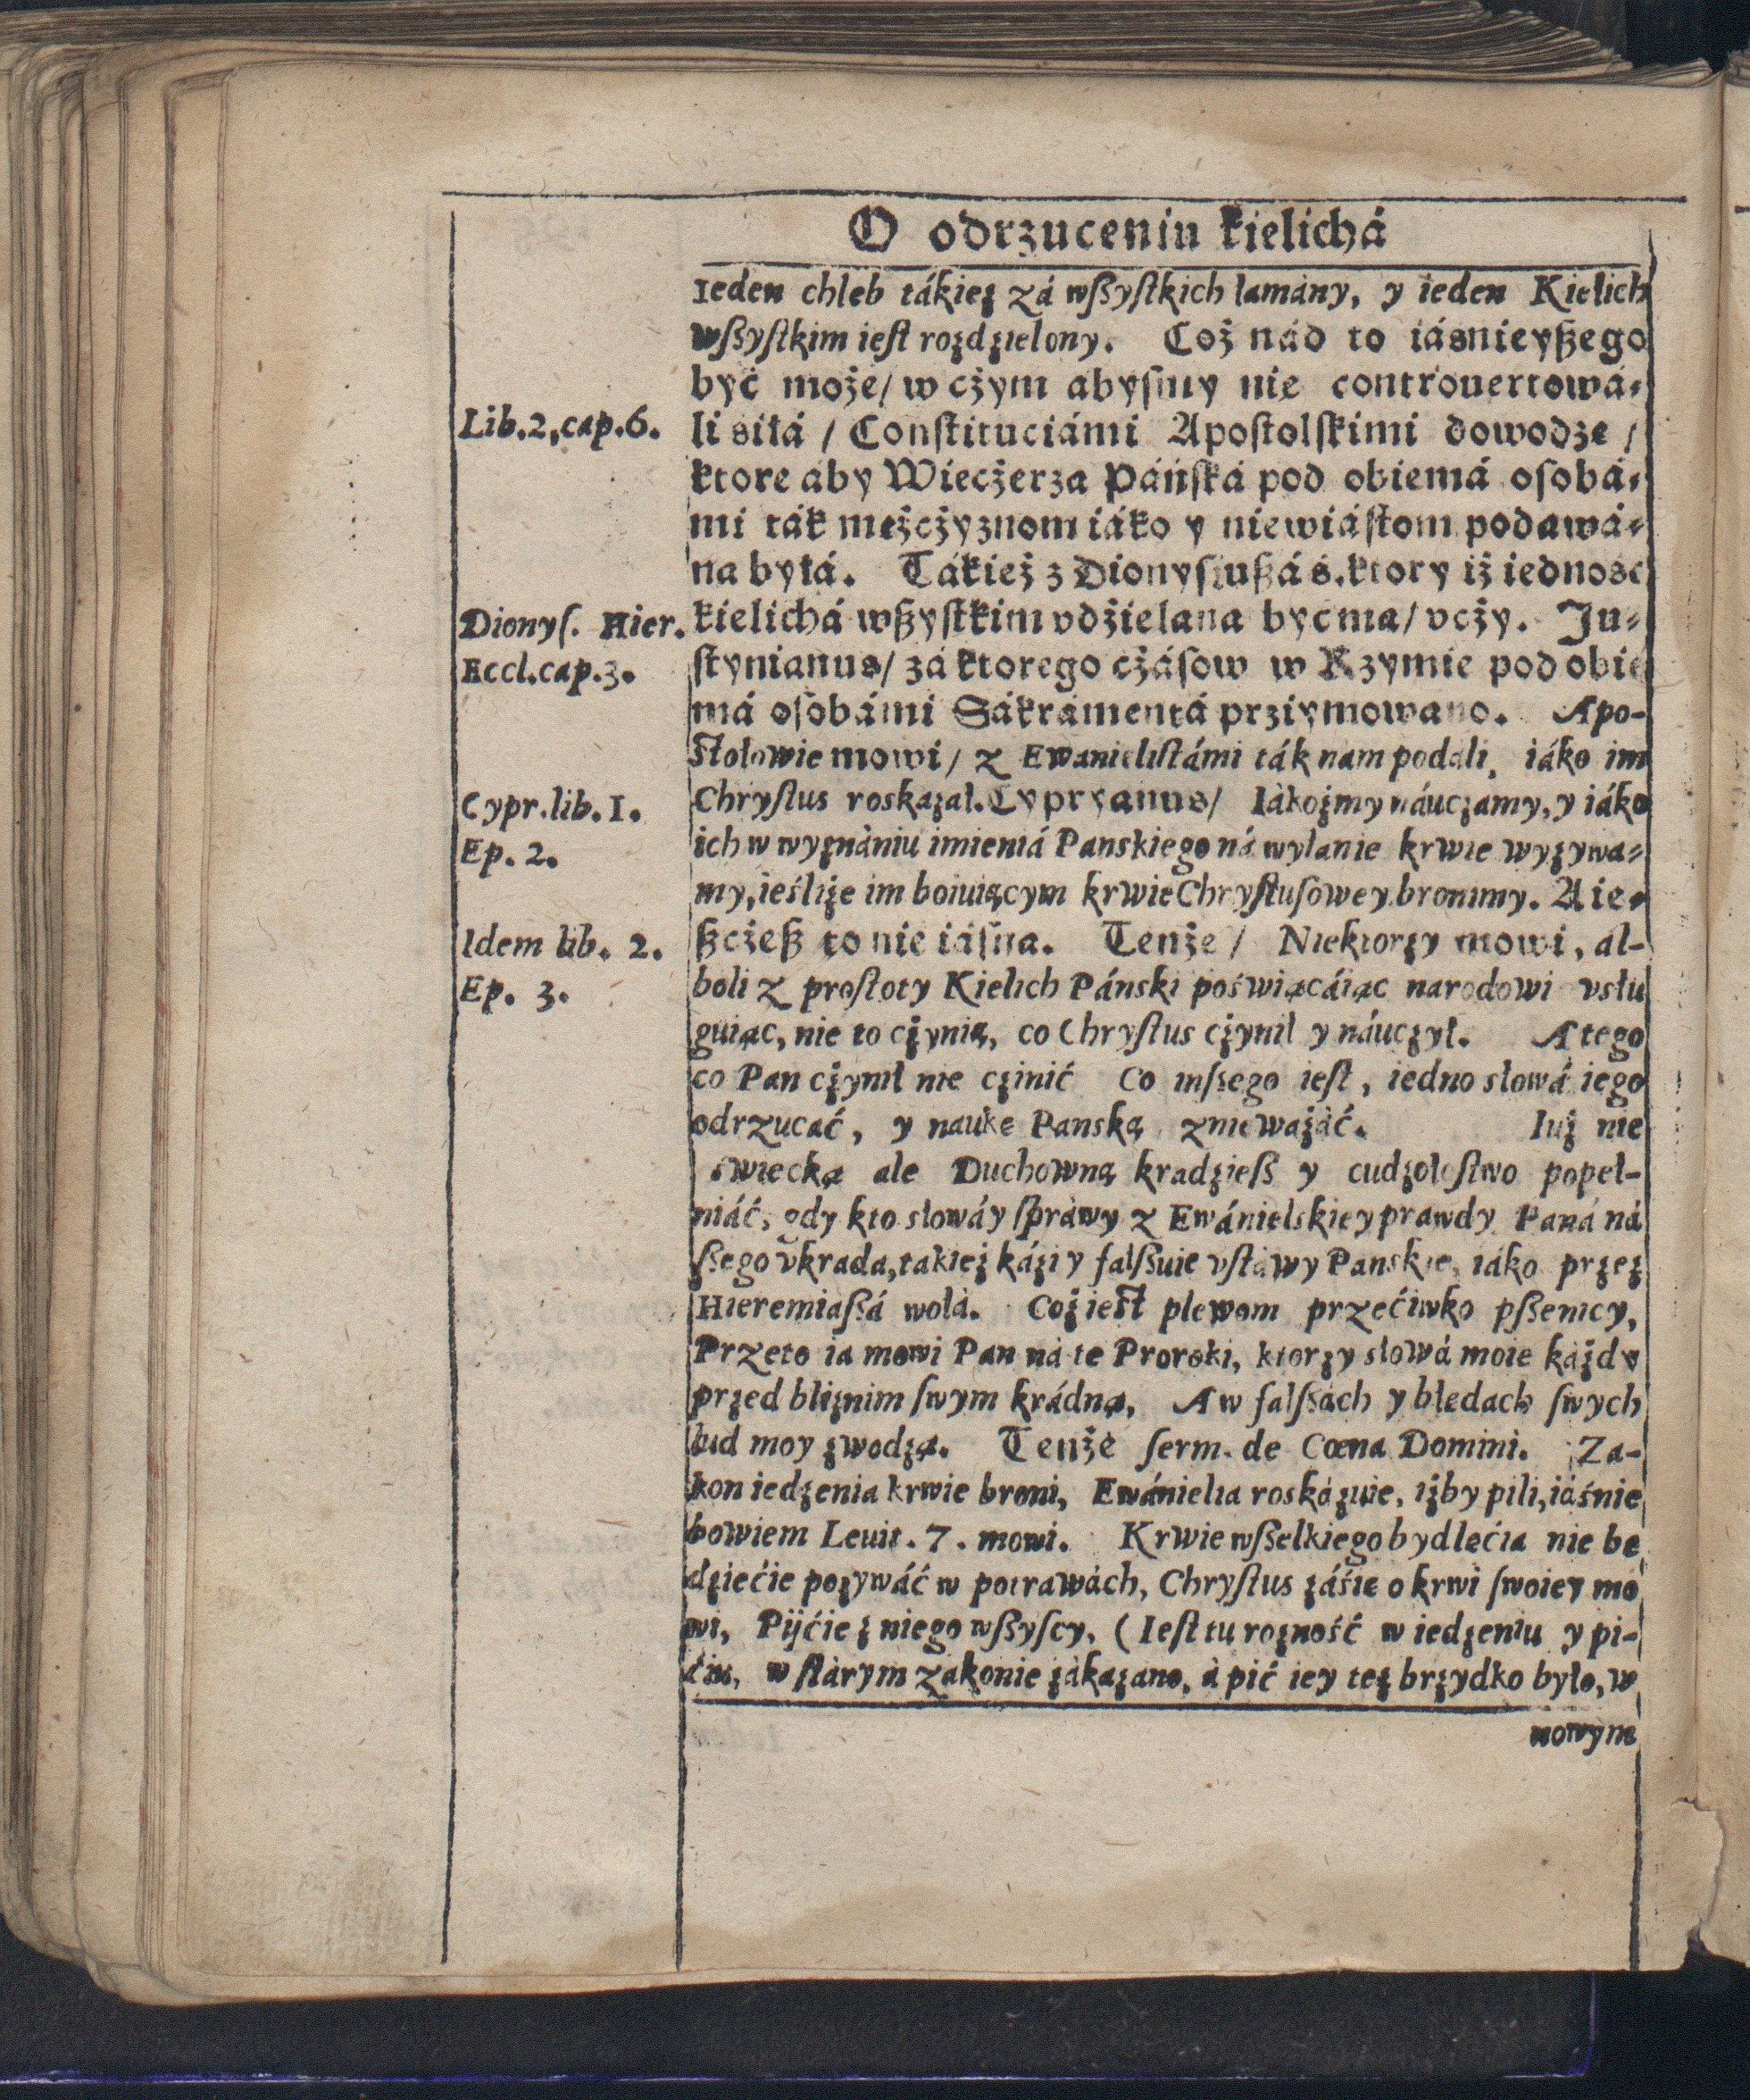 O odrzuceniu kielichá
Ieden chleb tákież zá wßyſtkich łamány, y ieden Kielich
wßyſtkim ieſt rozdzielony. Coż nád to iásnieyßego
być może/ w cżym abyſmy nie controuertowá-
Lib.2,cap.6.
li siłá / Conſtituciámi Apoſtolſkimi dowodze /
ktore aby Wiecżerza Páńſka pod obiemá oſobá-
mi ták meżcżyznom iáko y niewiáſtom podawá-
na byłá. Tákież z Dionyſiußá ś. ktory iż iedność
Dionyſ. Hier.
kielichá wßyſtkim vdżielana być ma/ vcży. Ju-
Eccl.cap.3.
ſtynianus/ zá ktorego cżáſow w Rzymie pod obie
má oſobámi Sákrámentá prziymowano. Apo-
ſtołowie mowi/ z Ewanieliſtámi ták nam podali, iáko im
Cypr.lib.1.
Chryſtus roskazał. Cypryanus/ Iákożmy náuczamy, y iáko
Ep. 2.
ich w wyznániu imieniá Panskiego ná wylanie krwie wyzywa-
my, ieśliże im boiuiącym krwie Chryſtuſowey bronimy. A ie-
Idem lib. 2.
ßcżeß to nie iáſna. Tenże / Niektorzy mowi, ál-
Ep. 3.
boli z proſtoty Kielich Pánski poświącáiąc narodowi vsłu
guiąc, nie to cżynią, co Chryſtus cżynił y náuczył. A tego
co Pan cżynił nie czinić Co inſzego ieſt, iedno słowá iego
odrzucać, y nauke Panską znieważáć. Iuż nie
świecką ale Duchowną kradzieß y cudzołoſtwo popeł-
niáć, gdy kto słowá y ſpráwy z Ewánielskiey prawdy Paná ná
ßego vkrada, takież káźi y falßuie vſtáwy Panskie, iáko przez
Hieremiaßá woła. Coż ieſt plewom przećiwko pßenicy,
Przeto ia mowi Pan ná te Proroki, ktorzy słowá moie każdy
przed bliznim ſwym krádną, A w falſzach y błedach ſwych
lud moy zwodzą. Tenże ſerm. de Cœna Domini. Za-
kon iedzenia krwie broni, Ewánielia roskázuie, iżby pili, iáśnie
bowiem Leuit. 7. mowi. Krwie wßelkiego bydlećia nie be
dziećie pożywáć w potrawách, Chryſtus záśie o krwi ſwoiey mo
wi, Pijćie z niego wßyſcy, (Ieſt tu rozność w iedzeniu y pi-
ćiu, w ſtárym zakonie zákazano, á pić iey też brzydko było, w
nowym